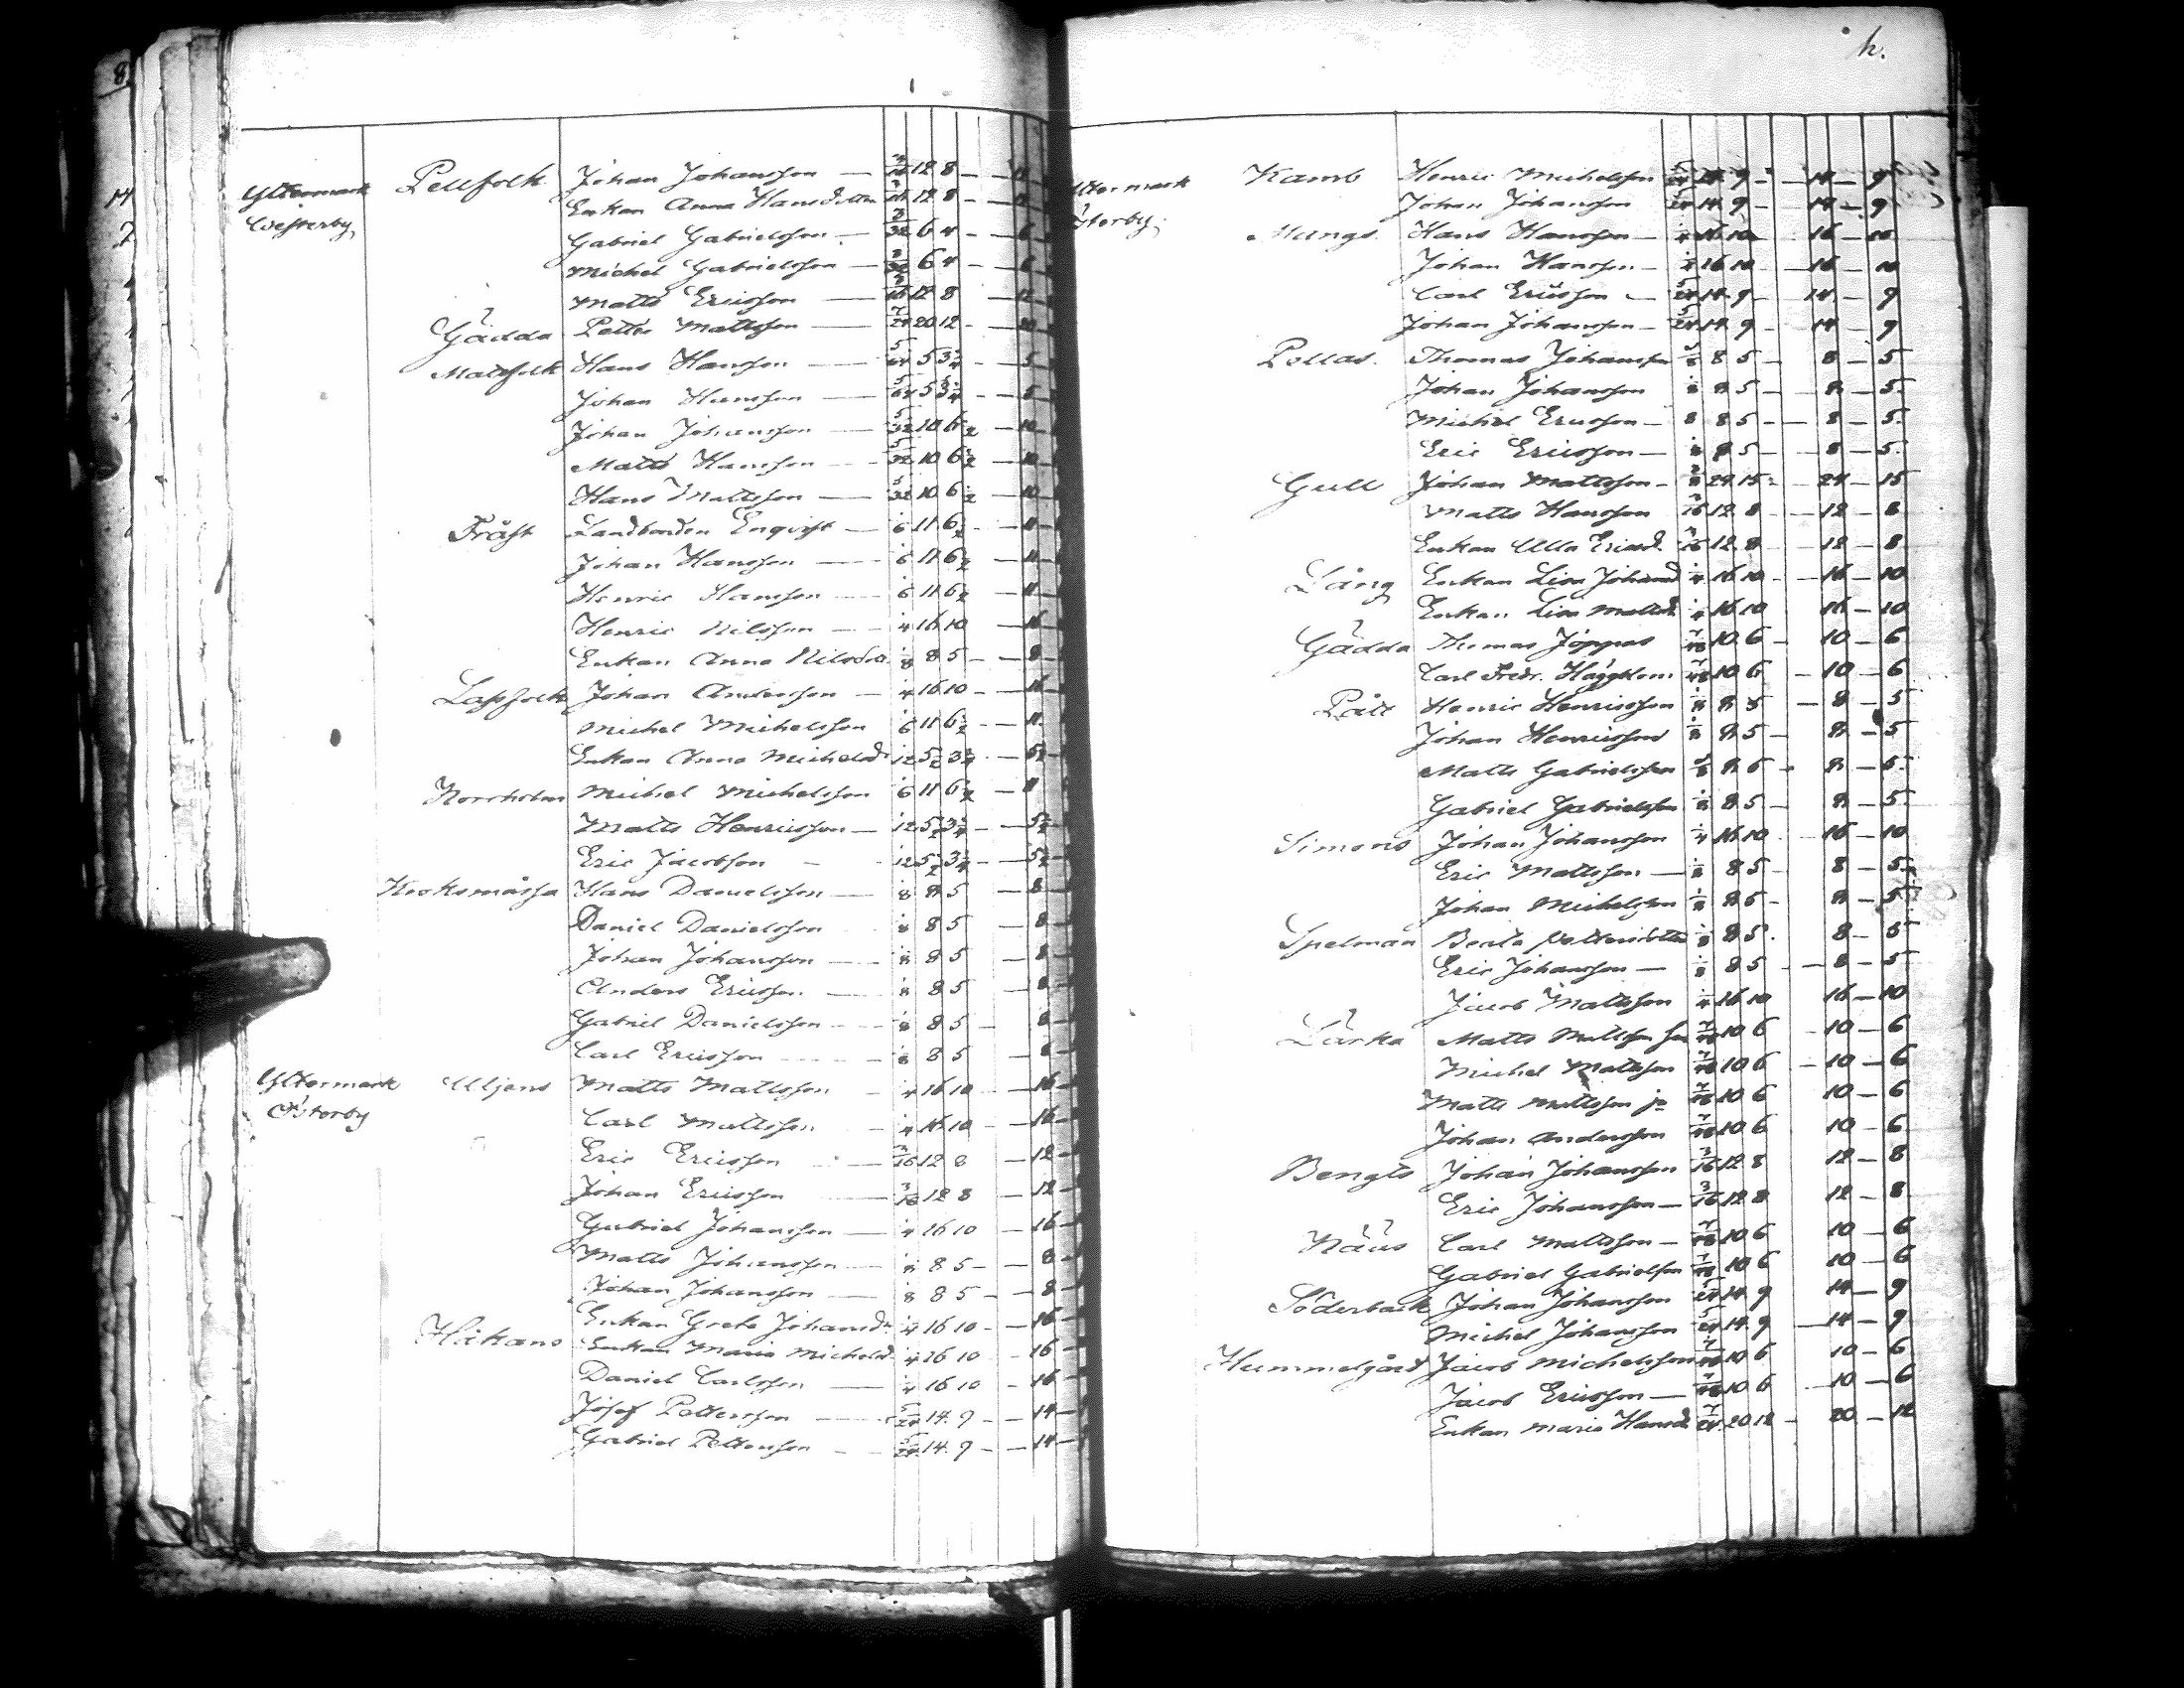 h.
Yttermark Pellfolk Johan Johansson — 3/16 12 8 — 12 —
Westerby Enkan Anna Hansdotter 3/16 12 8 — 12 —
Gabriel Gabrielsson — 3/32 6 4 — 6 —
Michel Gabrielsson — 3/32 6 4 — 6 —
Matts Ericsson — 3/16 12 8 — 12 —
Gädda Petter Mattsson — 7/24 20 12 — 20 —
Matsfolk Hans Hansson — 5/64 5 3 1/4 — 5 —
Johan Hansson — 5/64 5 3 1/4 — 5 —
Johan Johansson — 5/32 10 6 1/2 — 10 —
Matts Hansson — 5/32 10 6 1/2 — 10 —
Hans Mattsson — 5/32 10 6 1/2 — 10 —
Fräst Landbonden Enqvist — 1/6 11 6 1/2 — 11 —
Johan Hansson — 1/6 11 6 1/2 — 11 —
Henric Hansson — 1/6 11 6 1/2 — 11 —
Henric Nilsson — 1/4 16 10 — 16 —
Enkan Anna Nilsdr 1/8 8 5 — 8 —
Lassfolk Johan Andersson — 1/4 16 10 — 16 —
Michel Michelsson 1/6 11 6 1/2 — 11 —
Enkan Anna Michelsdr 1/12 5 1/2 3 1/4 — 5 1/2 —
Norrholm Michel Michelsson 1/6 11 6 1/2 — 11
Matts Henricsson — 1/12 5 1/2 3 1/4 — 5 1/2 —
Eric Jacobsson — 1/12 5 1/2 3 1/4 — 5 1/2 —
Kroksmåssa Hans Danielsson — 1/8 8 5 — 8 —
Daniel Danielsson 1/8 8 5 — 8 —
Johan Johansson — 1/8 8 5 — 8 —
Anders Ericsson — 1/8 8 5 — 8 —
Gabriel Danielsson — 1/8 8 5 — 8 —
Carl Ericsson — 1/8 8 5 — 8 —
Yttermark Uljens Matts Mattsson 1/4 16 10 — 16 —
Österby Carl Mattsson — 1/4 16 10 — 16 —
Eric Ericsson — 3/16 12 8 — 12 —
Johan Ericsson — 3/16 12 8 — 12 —
Gabriel Johansson — 1/4 16 10 — 16 —
Matts Johansson — 1/8 8 5 — 8 —
Johan Johansson — 1/8 8 5 — 8 —
Håkans Enkan Greta Johansdr 1/4 16 10 — 16 —
Enkan Maria Michelsd 1/4 16 10 — 16
Daniel Carlsson — 1/4 16 10 — 16 —
Josef Pettersson — 5/24 14 9 — 14 —
Gabriel Pettersson — 5/24 14 9 — 14 —
Yttermark Kamb Henric Michelsson 5/24 14 9 — 14 — 9
Österby Johan Johansson 5/24 14 9 — 14 — 9
Mangs Hans Hansson — 1/4 16 10 16 — 10
Johan Hansson — 1/4 16 10 — 16 — 10
Carl Ericsson — 5/24 14 9 — 14 — 9
Johan Johansson — 5/24 14 9 — 14 — 9
Pellas Thomas Johansson 1/8 8 5 — 8 — 5
Johan Johansson 1/8 8 5 — 8 — 5
Michel Ericsson — 8 8 5 — 8 — 5
Eric Ericsson — 1/8 8 5 — 8 — 5
Gull Johan Mattsson — 3/8 24 15 — 24 — 15
Matts Hansson 3/16 12 8 — 12 — 8
Enkan Ulla Ericsd. 3/16 12 8 12 — 8
Lång Enkan Lisa Johansd 1/4 16 10 — 16 — 10
Enkan Lisa Mattsd 1/4 16 10 16 — 10
Gädda Thomas Joppas 7/48 10 6 — 10 — 6
Carl Fredr. Häggblom 7/48 10 6 — 10 — 6
Pått Henric Henricsson 1/8 8 5 — 8 — 5
Johan Henricsson 1/8 8 5 — 8 — 5
Matts Gabrielsson 1/8 8 5 — 8 — 5
Gabriel Gabrielsson 1/8 8 5 — 8 — 5
Simons Johan Johansson 1/4 16 10 16 — 10
Eric Mattsson — 1/8 8 5 — 8 — 5
Johan Michelsson 1/8 8 5 — 8 — 5
Spelman Beata Pettersdotter 1/8 8 5 8 — 5
Eric Johansson — 1/8 8 5 — 8 — 5
Jacob Mattsson 1/4 16 10 16 — 10
Lärka Matts Mattsson 7/48 10 6 — 10 — 6
Michel Mattsson 7/48 10 6 — 10 — 6
Matts Mattsson jr 7/48 10 6 10 — 6
Johan Andersson 7/48 10 6 10 — 6
Bengts Johan Johansson 3/16 12 8 12 — 8
Eric Johansson — 3/16 12 8 12 — 8
Näüs Carl Mattsson — 7/48 10 6 10 — 6
Gabriel Gabrielsson 7/48 10 6 10 — 6
Söderback Johan Johansson 5/24 14 9 14 — 9
Michel Johansson 5/24 14 9 — 14 — 9
Hummelgård Jacob Michelsson 7/48 10 6 10 — 6
Jacob Ericsson — 7/48 10 6 — 10 — 6
Enkan Maria Hansd. 7/24 20 12 — 20 — 12